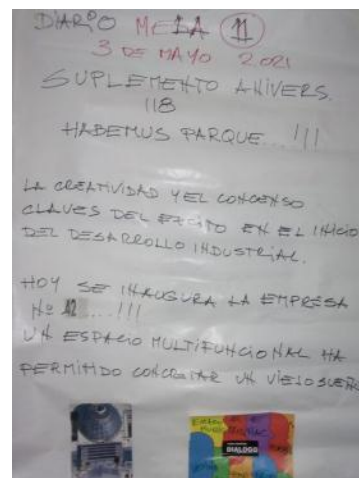 DIARIO MESA 11
3 DE MAYO 2021
SUPLEMENTO ANIVERS.
118
HABEMUS PARQUE...!!!
LA CREATIVIDAD Y EL CONCENSO
CLAVES DEL EXITO EN EL INICIO
DEL DESARROLLO INDUSTRIAL.
HOY SE INAUGURA LA EMPRESA
Nº 12...!!!
UN ESPACIO MULTIFUNCIONAL HA
PERMITIDO CONCRETAR UN VIEJO SUEÑO
DIALOGO